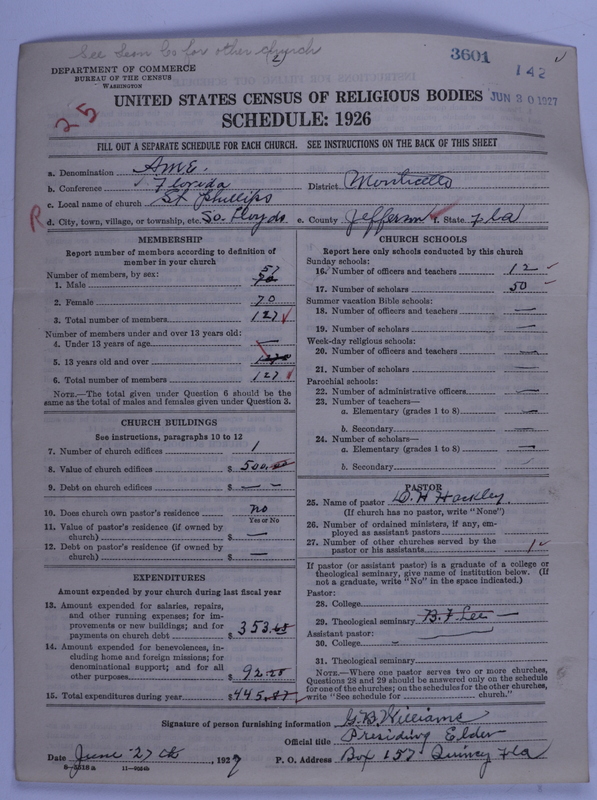 See Leon Co for other church
(2)
3601
142
JUN 30 1927
25
DEPARTMENT OF COMMERCE
BUREAU OF THE CENSUS
WASHINGTON
UNITED STATES CENSUS OF RELIGIOUS BODIES
SCHEDULE: 1926
FILL OUT A SEPARATE SCHEDULE FOR EACH CHURCH. SEE INSTRUCTIONS ON THE BACK OF THIS SHEET
a. Denomination A.M.E.
b. Conference Florida District Monticello
c. Local name of church St Phillips
R d. City, town, village, or township, etc. So. Lloyds e. County Jefferson f. State Fla
MEMBERSHIP
Report number of members according to definition of member in your church
Number of members, by sex:
1. Male 57
2. Female 70
3. Total number of members 127
Number of members under and over 13 years old:
4. Under 13 years of age —
5. 13 years old and over
6. Total number of members 127
NOTE.—The total given under Question 6 should be the same as the total of males and females given under Question 3.
CHURCH BUILDINGS
See instructions, paragraphs 10 to 12
7. Number of church edifices 1
8. Value of church edifices $ 500.00
9. Debt on church edifices $ — —
10. Does church own pastor's residence no
Yes or No
11. Value of pastor's residence (if owned by church) $ —
12. Debt on pastor's residence (if owned by church) $ —
EXPENDITURES
Amount expended by your church during last fiscal year
13. Amount expended for salaries, repairs, and other running expenses; for improvements or new buildings; and for payments on church debt $ 353.
14. Amount expended for benevolences, including home and foreign missions; for denominational support; and for all other purposes $ 92.
15. Total expenditures during year $ 445.
CHURCH SCHOOLS
Report here only schools conducted by this church
Sunday schools:
16. Number of officers and teachers 12
17. Number of scholars 50
Summer vacation Bible schools:
18. Number of officers and teachers —
19. Number of scholars —
Week-day religious schools:
20. Number of officers and teachers —
21. Number of scholars —
Parochial schools:
22. Number of administrative officers —
23. Number of teachers—
a. Elementary (grades 1 to 8) —
b. Secondary —
24. Number of scholars—
a. Elementary (grades 1 to 8) —
b. Secondary —
PASTOR
25. Name of pastor D. H. Hackley
(If church has no pastor, write "None")
26. Number of ordained ministers, if any, employed as assistant pastors
27. Number of other churches served by the pastor or his assistants 1
If pastor (or assistant pastor) is a graduate of a college or theological seminary, give name of institution below. (If not a graduate, write "No" in the space indicated.)
Pastor:
28. College
29. Theological seminary B. F. Lee —
Assistant pastor:
30. College
31. Theological seminary
NOTE.—Where one pastor serves two or more churches, Questions 28 and 29 should be answered only on the schedule for one of the churches; on the schedules for the other churches, write "See schedule for church."
Signature of person furnishing information G. B. Williams
Official title Presiding Elder
Date June 27th, 1927 P. O. Address Box 157 Quincy Fla